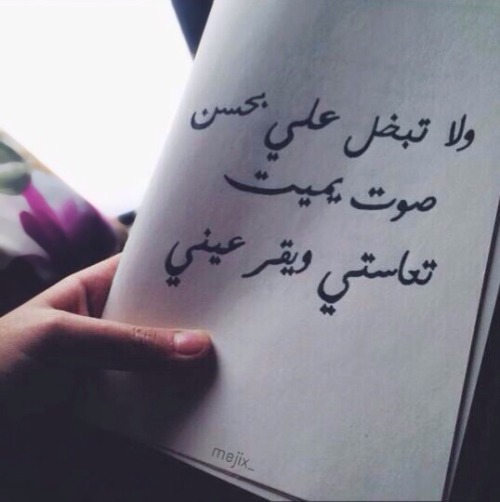 ولا تبخل علي بحسن
صوت يميت
تعاستي ويقر عيني
mejix_